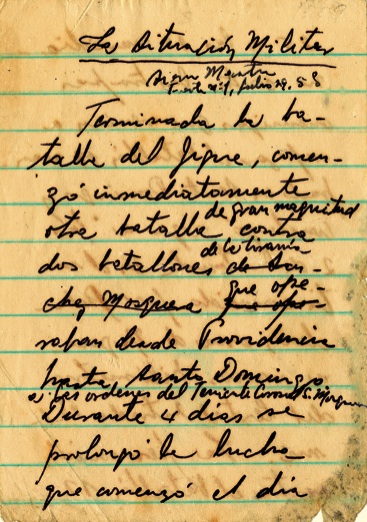 La Situación Militar
Sierra Maestra
Frente No 1, Julio 29, 58
Terminada la ba-
talla del Jigue, comen-
zó inmediatamente
de gran magnitud
otra batalla contra
de la tiranía
dos batallones de San-
chez Mosquera que ope- que ope-
raban desde Providencia
hasta Santo Domingo
a las ordenes del Teniente Coronel S. Mosquera
Durante 4 dias se
prolongó la lucha
que comenzó el dia